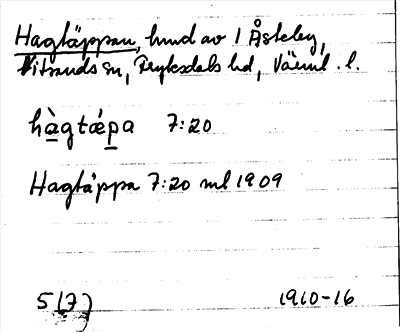 Hagtäppan, hmd av 1 Åsteby,
Vitsands sn, Fryksdals hd, Värml. l.
hàgtǽpa 7:20
Hagtäppa 7:20 ml 1909
5 (7) 1910-16